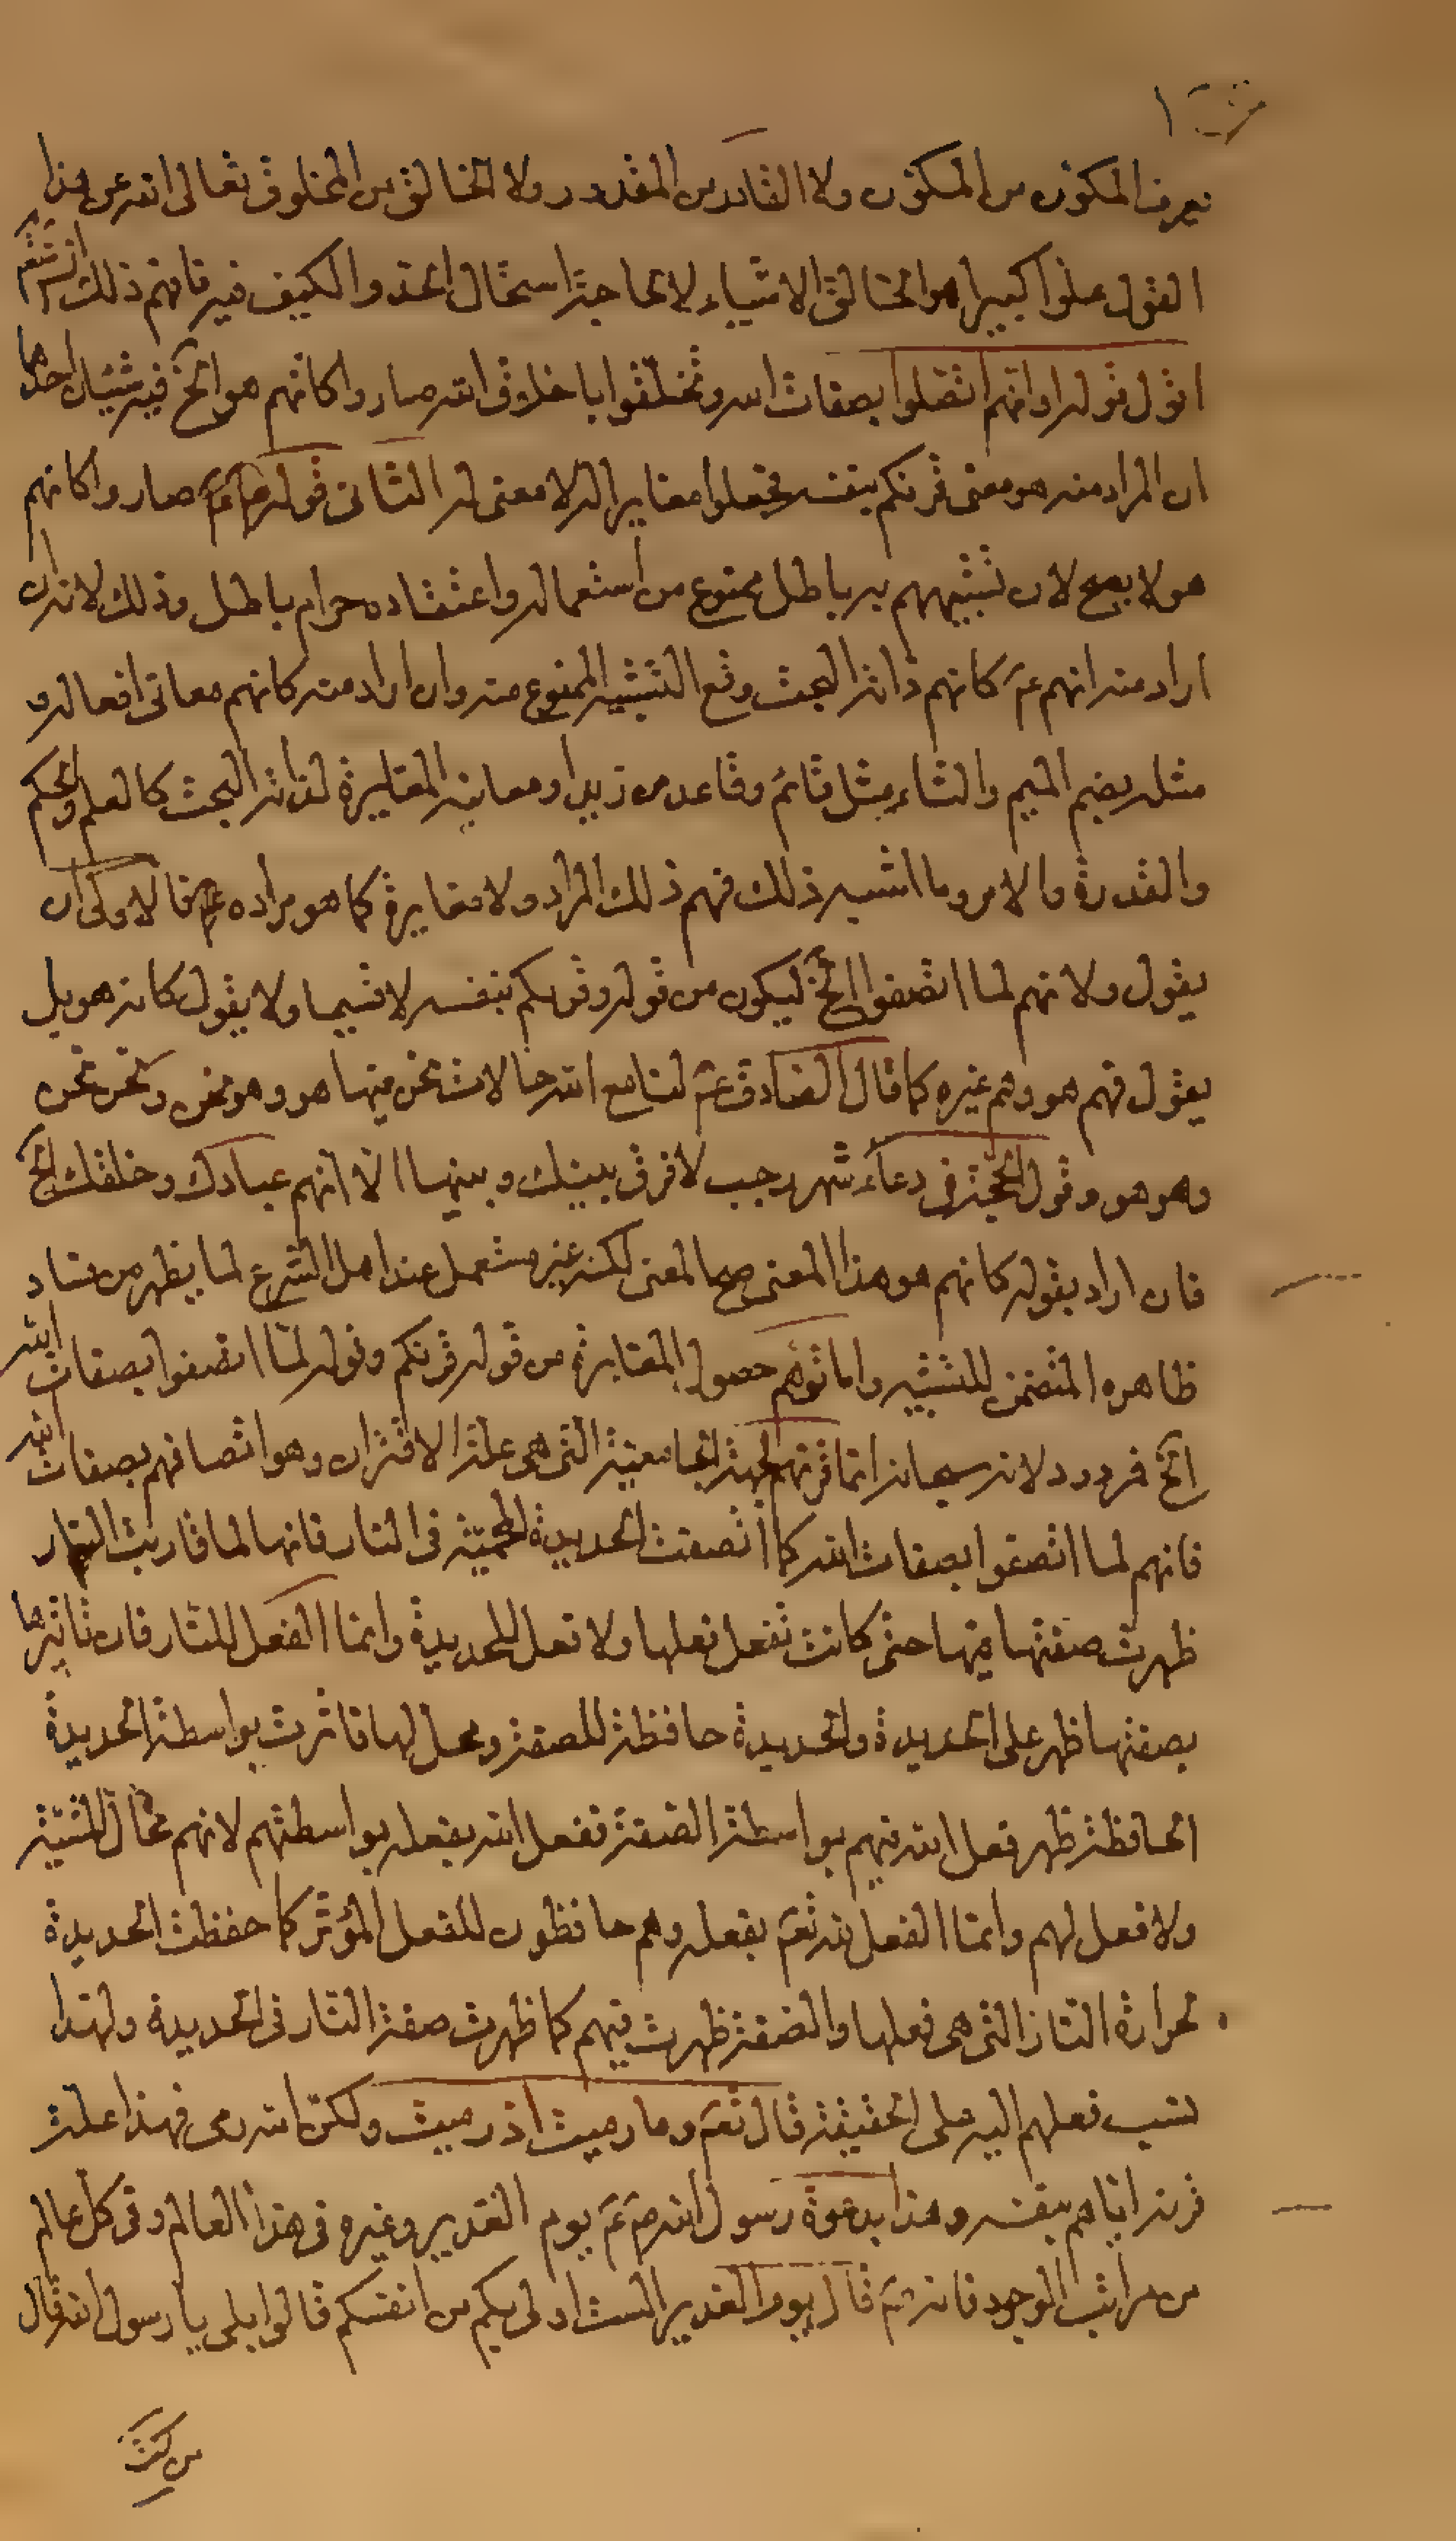 يعرف المكوِّن من المكوَّن ولا القادر من المقدور ولا الخالق من المخلوق تعالى الله عن هذا
القول علوا كبيرا هو الخالق الاشياء لا لحاجة استحال الحد والكيف فيه فافهم ذلك
اقول قوله او انهم اتصلوا بصفات الله وتخلقوا باخلاق الله صاروا كانهم هو الخ فيه شيئان احدهما
ان المراد منه هو معنى قرنكم بنفسه فجعله مغايرا له لا معنى له الثاني قوله صاروا كانهم
هو لا يصح لان تشبيههم به باطل ممنوع من استعماله واعتقاده حرام باطل وذلك لانه ان
اراد منه انهم عم كانهم ذاته البحت وقع التشبيه الممنوع منه وان اراد منه كانهم معاني افعاله و
مثله بضم الميم والثاء مثل قائم وقاعد من زيد او معانيه المغايرة لذاته البحت كالعلم والحكم
والقدرة والامر وما اشبه ذلك فهم ذلك المراد ولا مغايرة كما هو مراده فالاولى ان
يقول ولانهم لما اتصفوا الخ ليكون من قوله وقرنكم بنفسه لا قسيما ولا يقول كانه هو بل
يقول فهم هو وهم غيره كما قال الصادق عم لنا مع الله حالات نحن فيها هو وهو نحن ونحن نحن
وهو هو وقول الحجة في دعاء شهر رجب لا فرق بينك وبينها الا انهم عبادك وخلقك الخ
فان اراد بقوله كانهم هو هذا المعنى صح المعنى لكنه غير مستعمل عند اهل الشرع لما يظهر من فساد
ظاهره المتضمن للتشبيه واما توهم حصول المغايرة من قوله قرنكم وقوله لما اتصفوا بصفات الله
الخ فمردود لانه سبحانه انما قرنهم لجهة الجامعية التي هي علة الاقتران وهو اتصافهم بصفات الله
فانهم لما اتصفوا بصفات الله كما اتصفت الحديدة المحمية في النار فانها لما قاربت النار
ظهرت صفتها فيها حتى كانت تفعل فعلها ولا فعل للحديدة وانما الفعل للنار فان تاثيرها
بصفتها ظهر على الحديدة والحديدة حافظة للصفة ومحل لها فاثرت بواسطة الحديدة
الحافظة ظهر فعل الله فيهم بواسطة الصفة ففعل الله بفعله بواسطتهم لانهم محال المشية
ولا فعل لهم وانما الفعل لله تعم بفعله وهم حافظون للفعل المؤثر كما حفظت الحديدة
لحرارة النار التي هي فعلها والصفة ظهرت فيهم كما ظهرت صفة النار في الحديدة ولهذا
نسب فعلهم اليه على الحقيقة قال تعم وما رميت اذ رميت ولكن الله رمى فهذا علة
قرنه اياهم بنفسه وهذا بدعوة رسول الله يوم الغدير وغيره في هذا العالم وفي كل عالم
من مراتب الوجود فانه قال يوم الغدير الست اولى بكم من انفسكم قالوا بلى يا رسول الله قال
من كنت